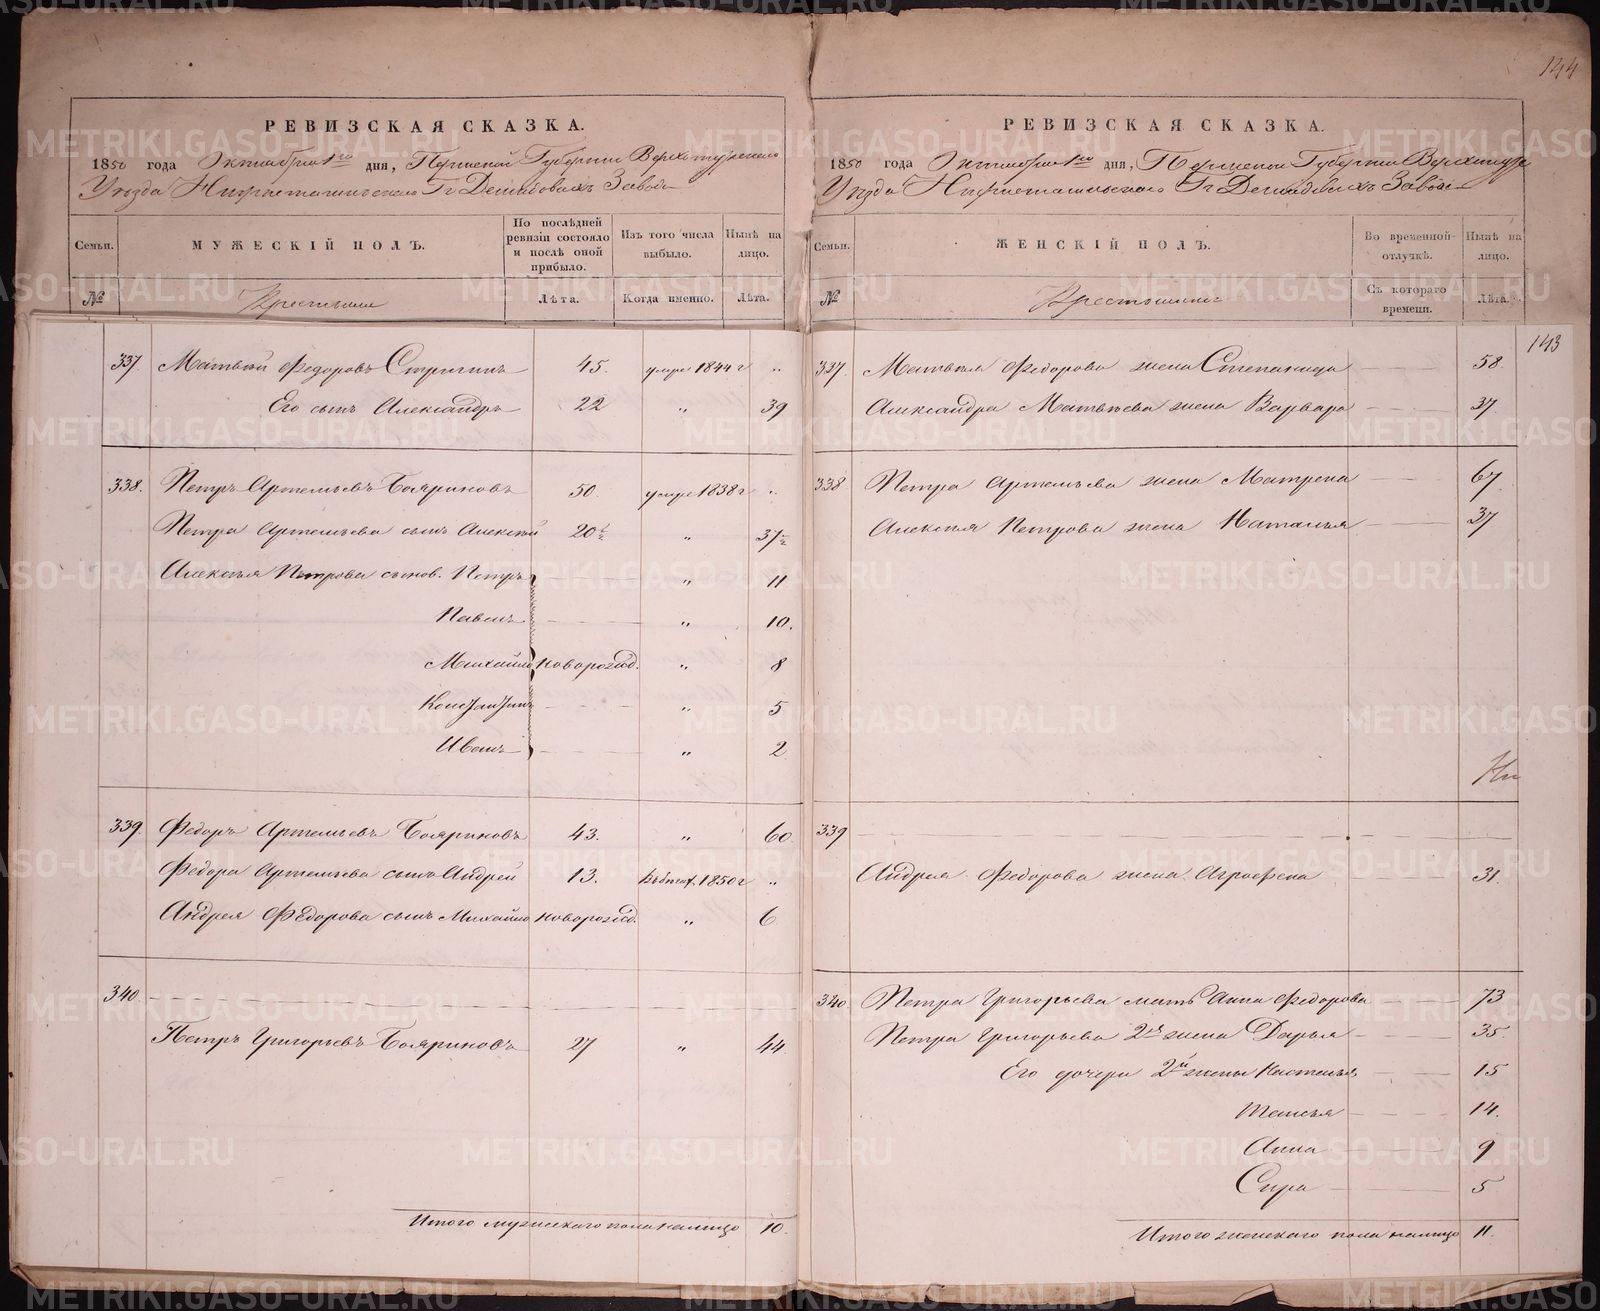 144
РЕВИЗСКАЯ СКАЗКА.
1850 года Октября 1го дня, Пермской Губернии Верхотурскаго
Уѣзда Нижнетагильскаго Гг Демидовыхъ Завода
Семьи. МУЖЕСКІЙ ПОЛЪ. По послѣдней ревизіи состояло и послѣ оной прибыло. Изъ того числа выбыло. Нынѣ на лицо.
№ Крестьяне Лѣта. Когда именно. Лѣта.
337 Матвѣй Федоровъ Стригинъ 45. умре 1844 г „
Его сынъ Александръ 22 „ 39
338. Петръ Артемьевъ Бояриновъ 50. умре 1838 г „
Петра Артемьева сынъ Алексѣй 20½ „ 37½
Алексѣя Петрова сынов. Петръ „ 11
Павелъ „ 10.
Михайло новорожд. „ 8
Константинъ „ 5
Иванъ „ 2
339. Федоръ Артемьевъ Бояриновъ 43. „ 60
Федора Артемьева сынъ Андрей 13. 1850 г „
Андрея Федорова сынъ Михайло новорожд. „ 6
340.
Петръ Григорьевъ Бояриновъ 27 „ 44
Итого мужескаго пола налицо 10.
РЕВИЗСКАЯ СКАЗКА.
1850 года Октября 1го дня, Пермской Губернии Верхотурс
Уѣзда Нижнетагильскаго Гг Демидовыхъ Завода
Семьи. ЖЕНСКІЙ ПОЛЪ. Во временной отлучкѣ. Нынѣ на лицо.
№ Крестьянки Съ котораго времени. Лѣта.
143
337. Матвѣя Федорова жена Степанида 58.
Александра Матвѣева жена Варвара 37
338 Петра Артемьева жена Матрена 67
Алексѣя Петрова жена Наталья 37
339
Андрея Федорова жена Агрофена 31.
340. Петра Григорьева мать Анна Федорова 73
Петра Григорьева 2я жена Дарья 35.
Его дочери 2й жены Настасья 15
Таисья 14.
Анна 9
Сира 5
Итого женскаго пола налицо 11.
METRIKI.GASO-URAL.RU